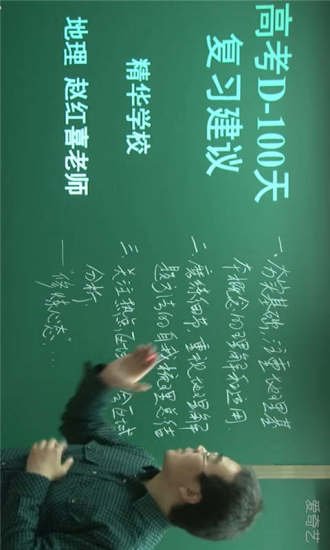 高考D-100天
复习建议
精华学校
地理 赵红喜老师
一、夯实基础,注重地理基
本概念的理解和运用.
二、磨练细节,重视地理解
题方法的自我梳理总结
三、关注热点
分析
—修炼心态…
爱奇艺